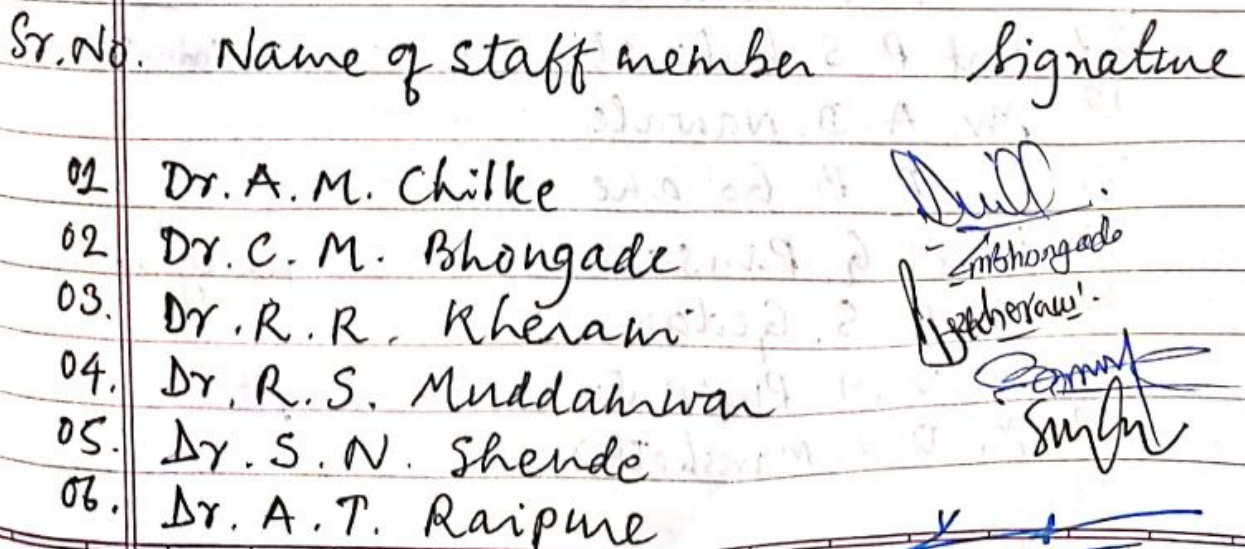 Sr.No. Name of staff member Signature
01 Dr. A. M. Chilke
02 Dr. C. M. Bhongade CMBhongade
03. Dr. R. R. Kherani
04. Dr. R. S. Muddamwar
05. Dr. S. N. Shende
06. Dr. A. T. Raipure